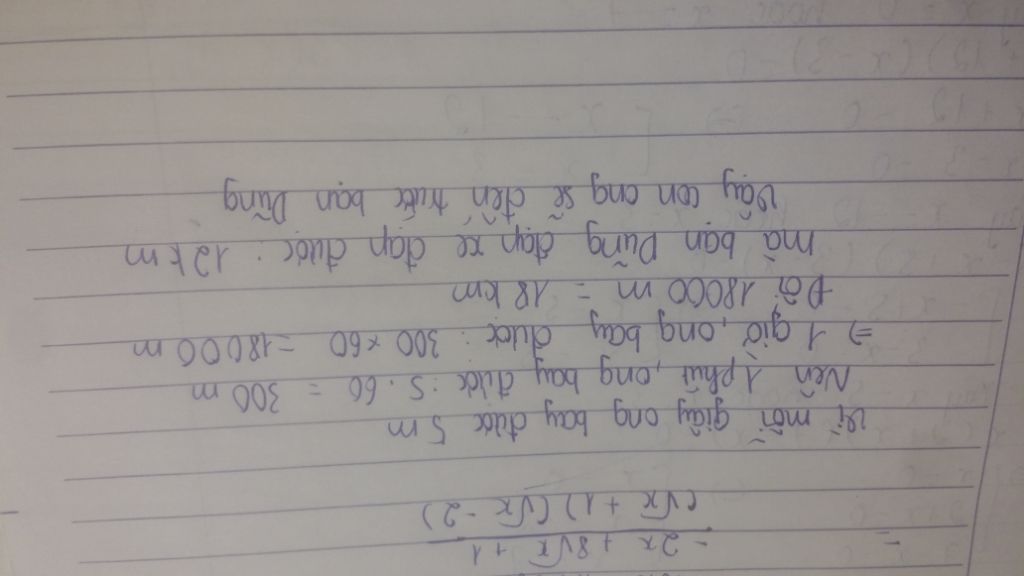 = -2x + 8√x + 1
(√x + 1)(√x - 2)
Vì mỗi giây ong bay được 5m
Nên 1 phút, ong bay được : 5.60 = 300 m
=> 1 giờ, ong bay được : 300 × 60 = 18000 m
Đổi 18000 m = 18 km
mà bạn Dũng đạp xe đạp được : 12 km
Vậy con ong sẽ đến trước bạn Dũng